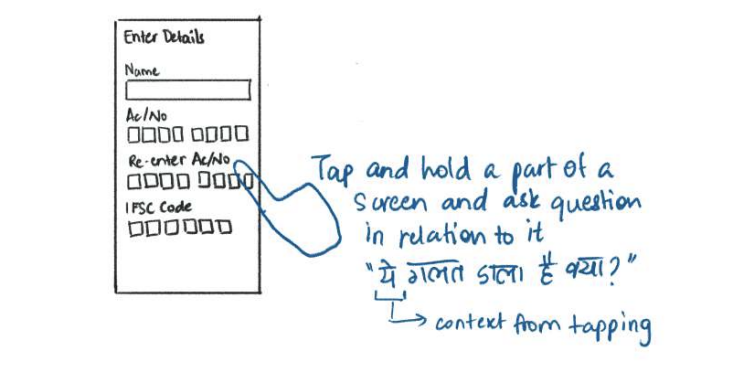 Enter Details
Name
Ac/No
Re-enter Ac/No
IFSC Code
Tap and hold a part of a
screen and ask question
in relation to it
"ये गलत डाला है क्या?"
context from tapping